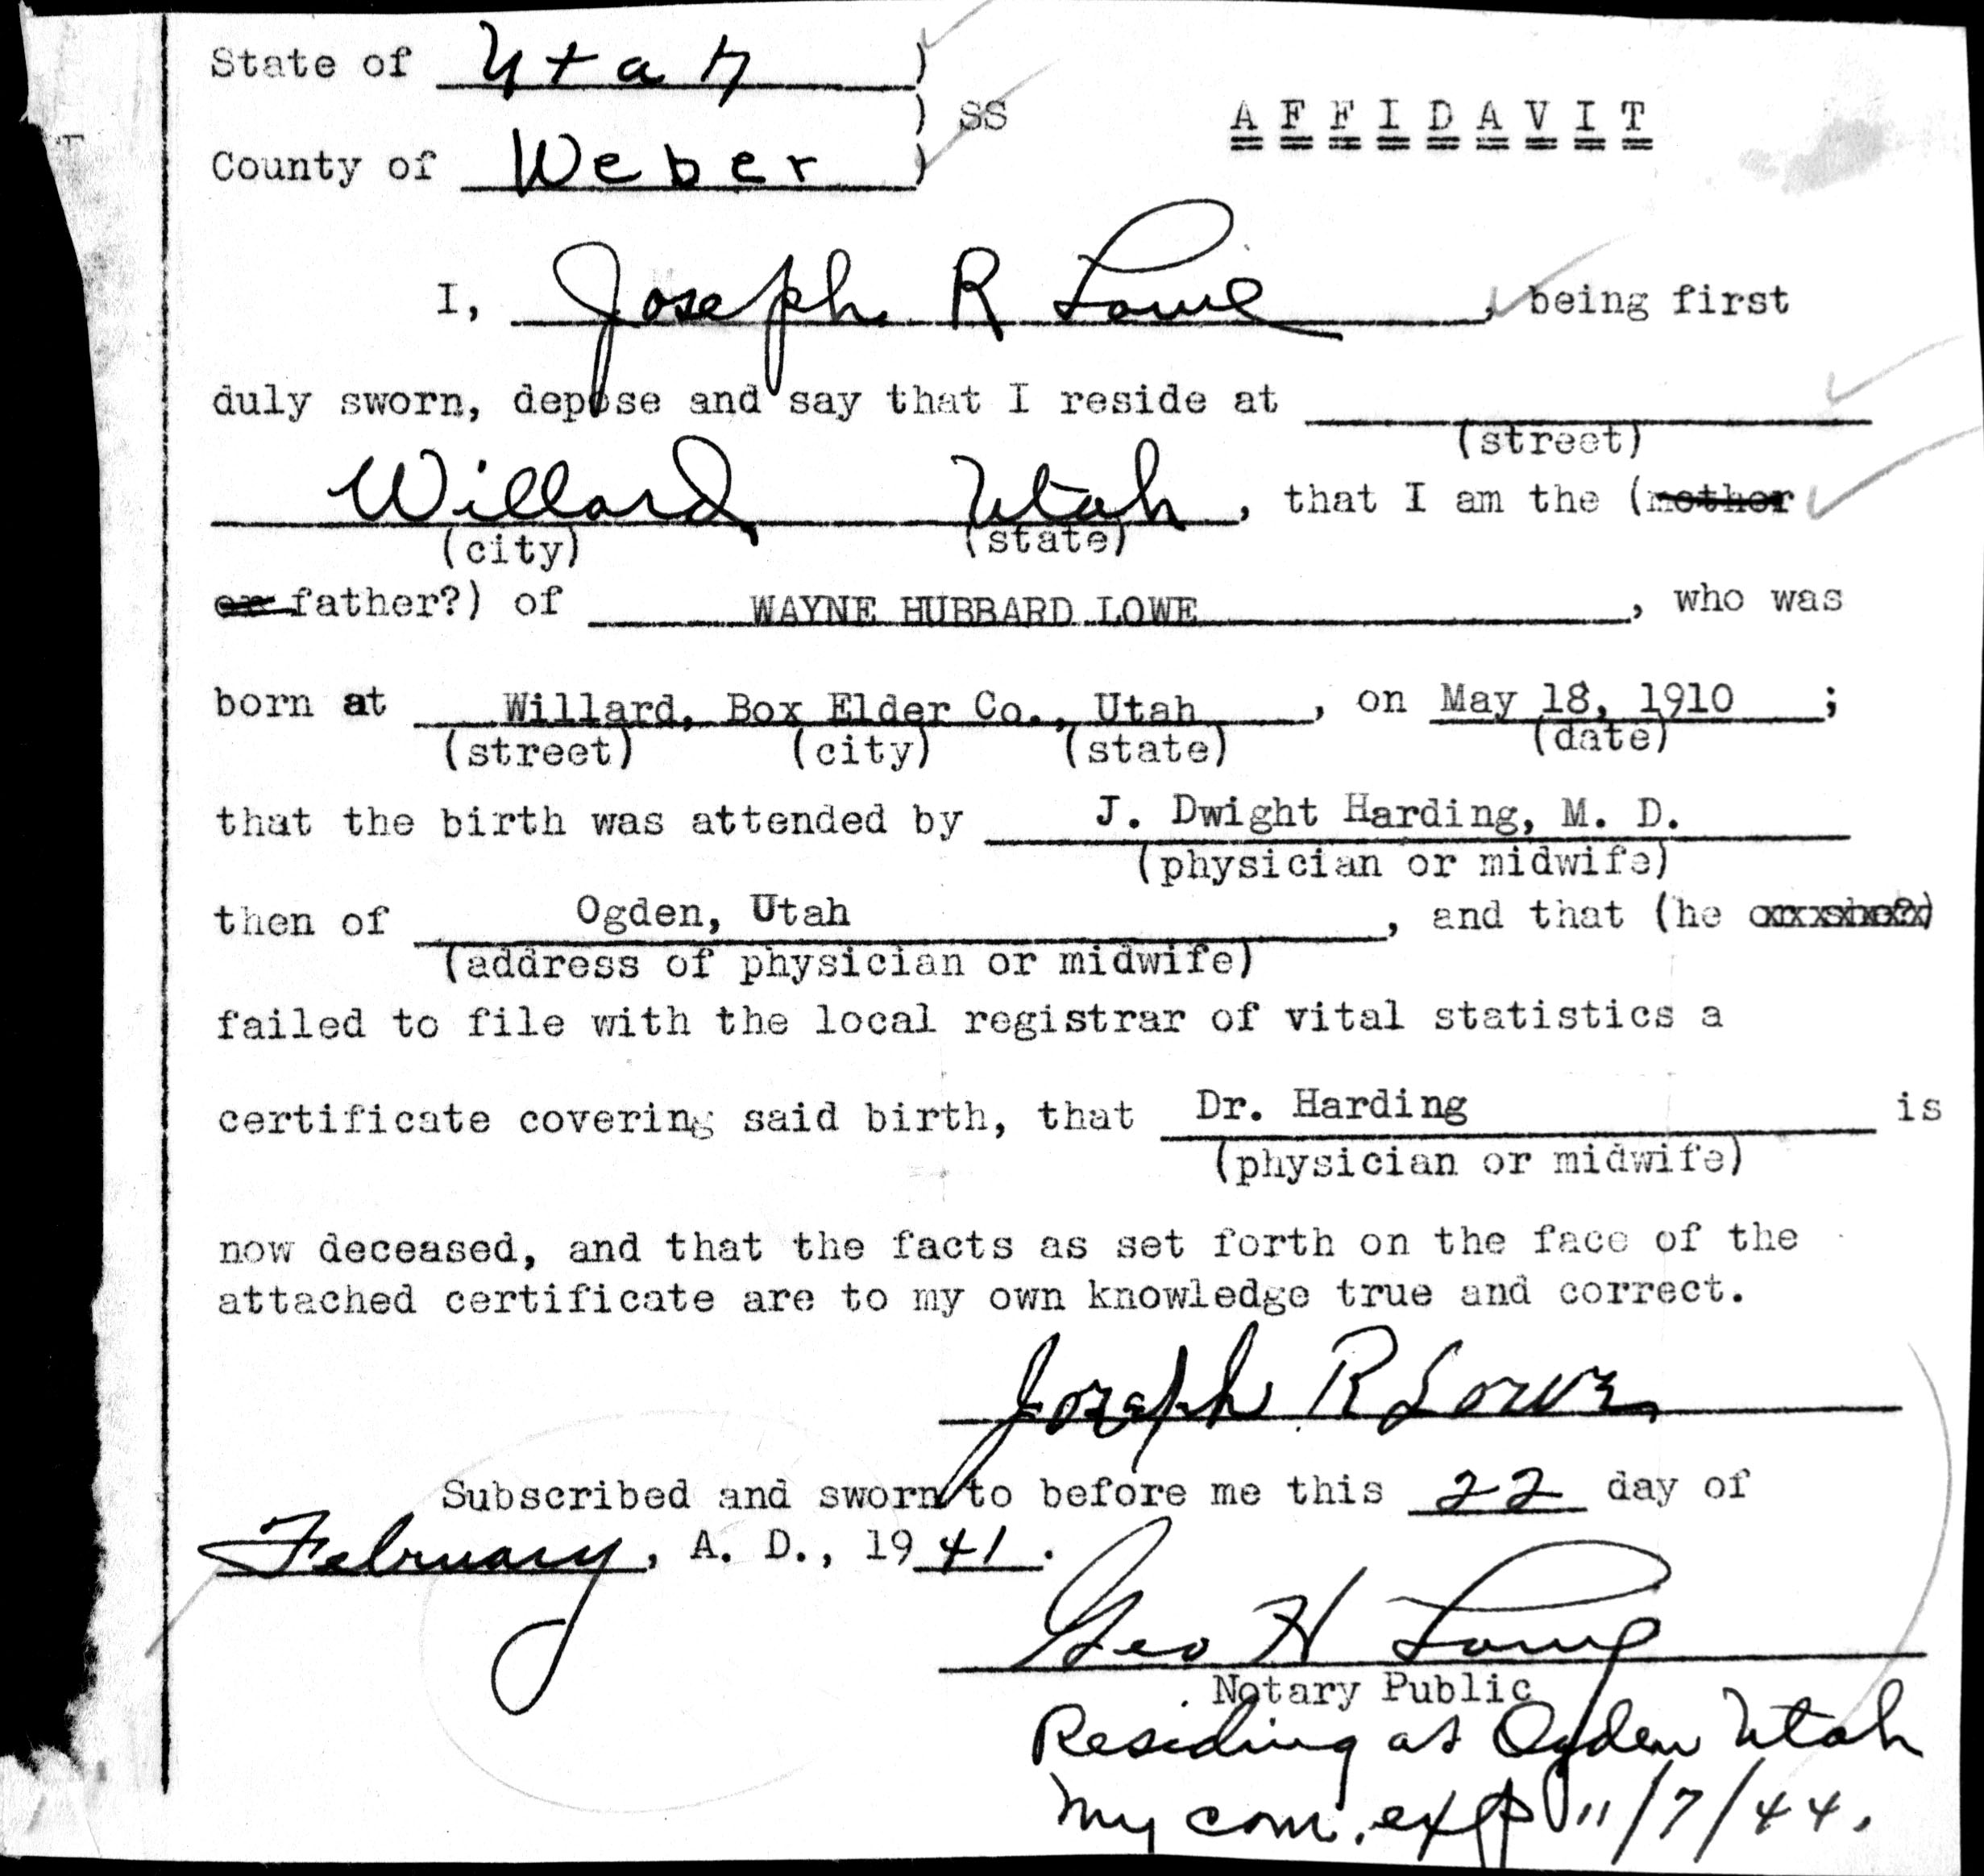 State of Utah )
) SS
A F F I D A V I T
County of Weber )
I, Joseph R Lowe, being first
duly sworn, depose and say that I reside at
(street)
Willard, Utah, that I am the (mother
(city) (state)
or father?) of WAYNE HUBBARD LOWE, who was
born at Willard, Box Elder Co., Utah, on May 18, 1910 ;
(street) (city) (state) (date)
that the birth was attended by J. Dwight Harding, M. D.
(physician or midwife)
then of Ogden, Utah, and that (he or she?)
(address of physician or midwife)
failed to file with the local registrar of vital statistics a
certificate covering said birth, that Dr. Harding is
(physician or midwife)
now deceased, and that the facts as set forth on the face of the
attached certificate are to my own knowledge true and correct.
Joseph R Lowe
Subscribed and sworn to before me this 22 day of
February, A. D., 1941.
Geo H
Notary Public
Residing at Ogden Utah
My com. exp 11/7/44.